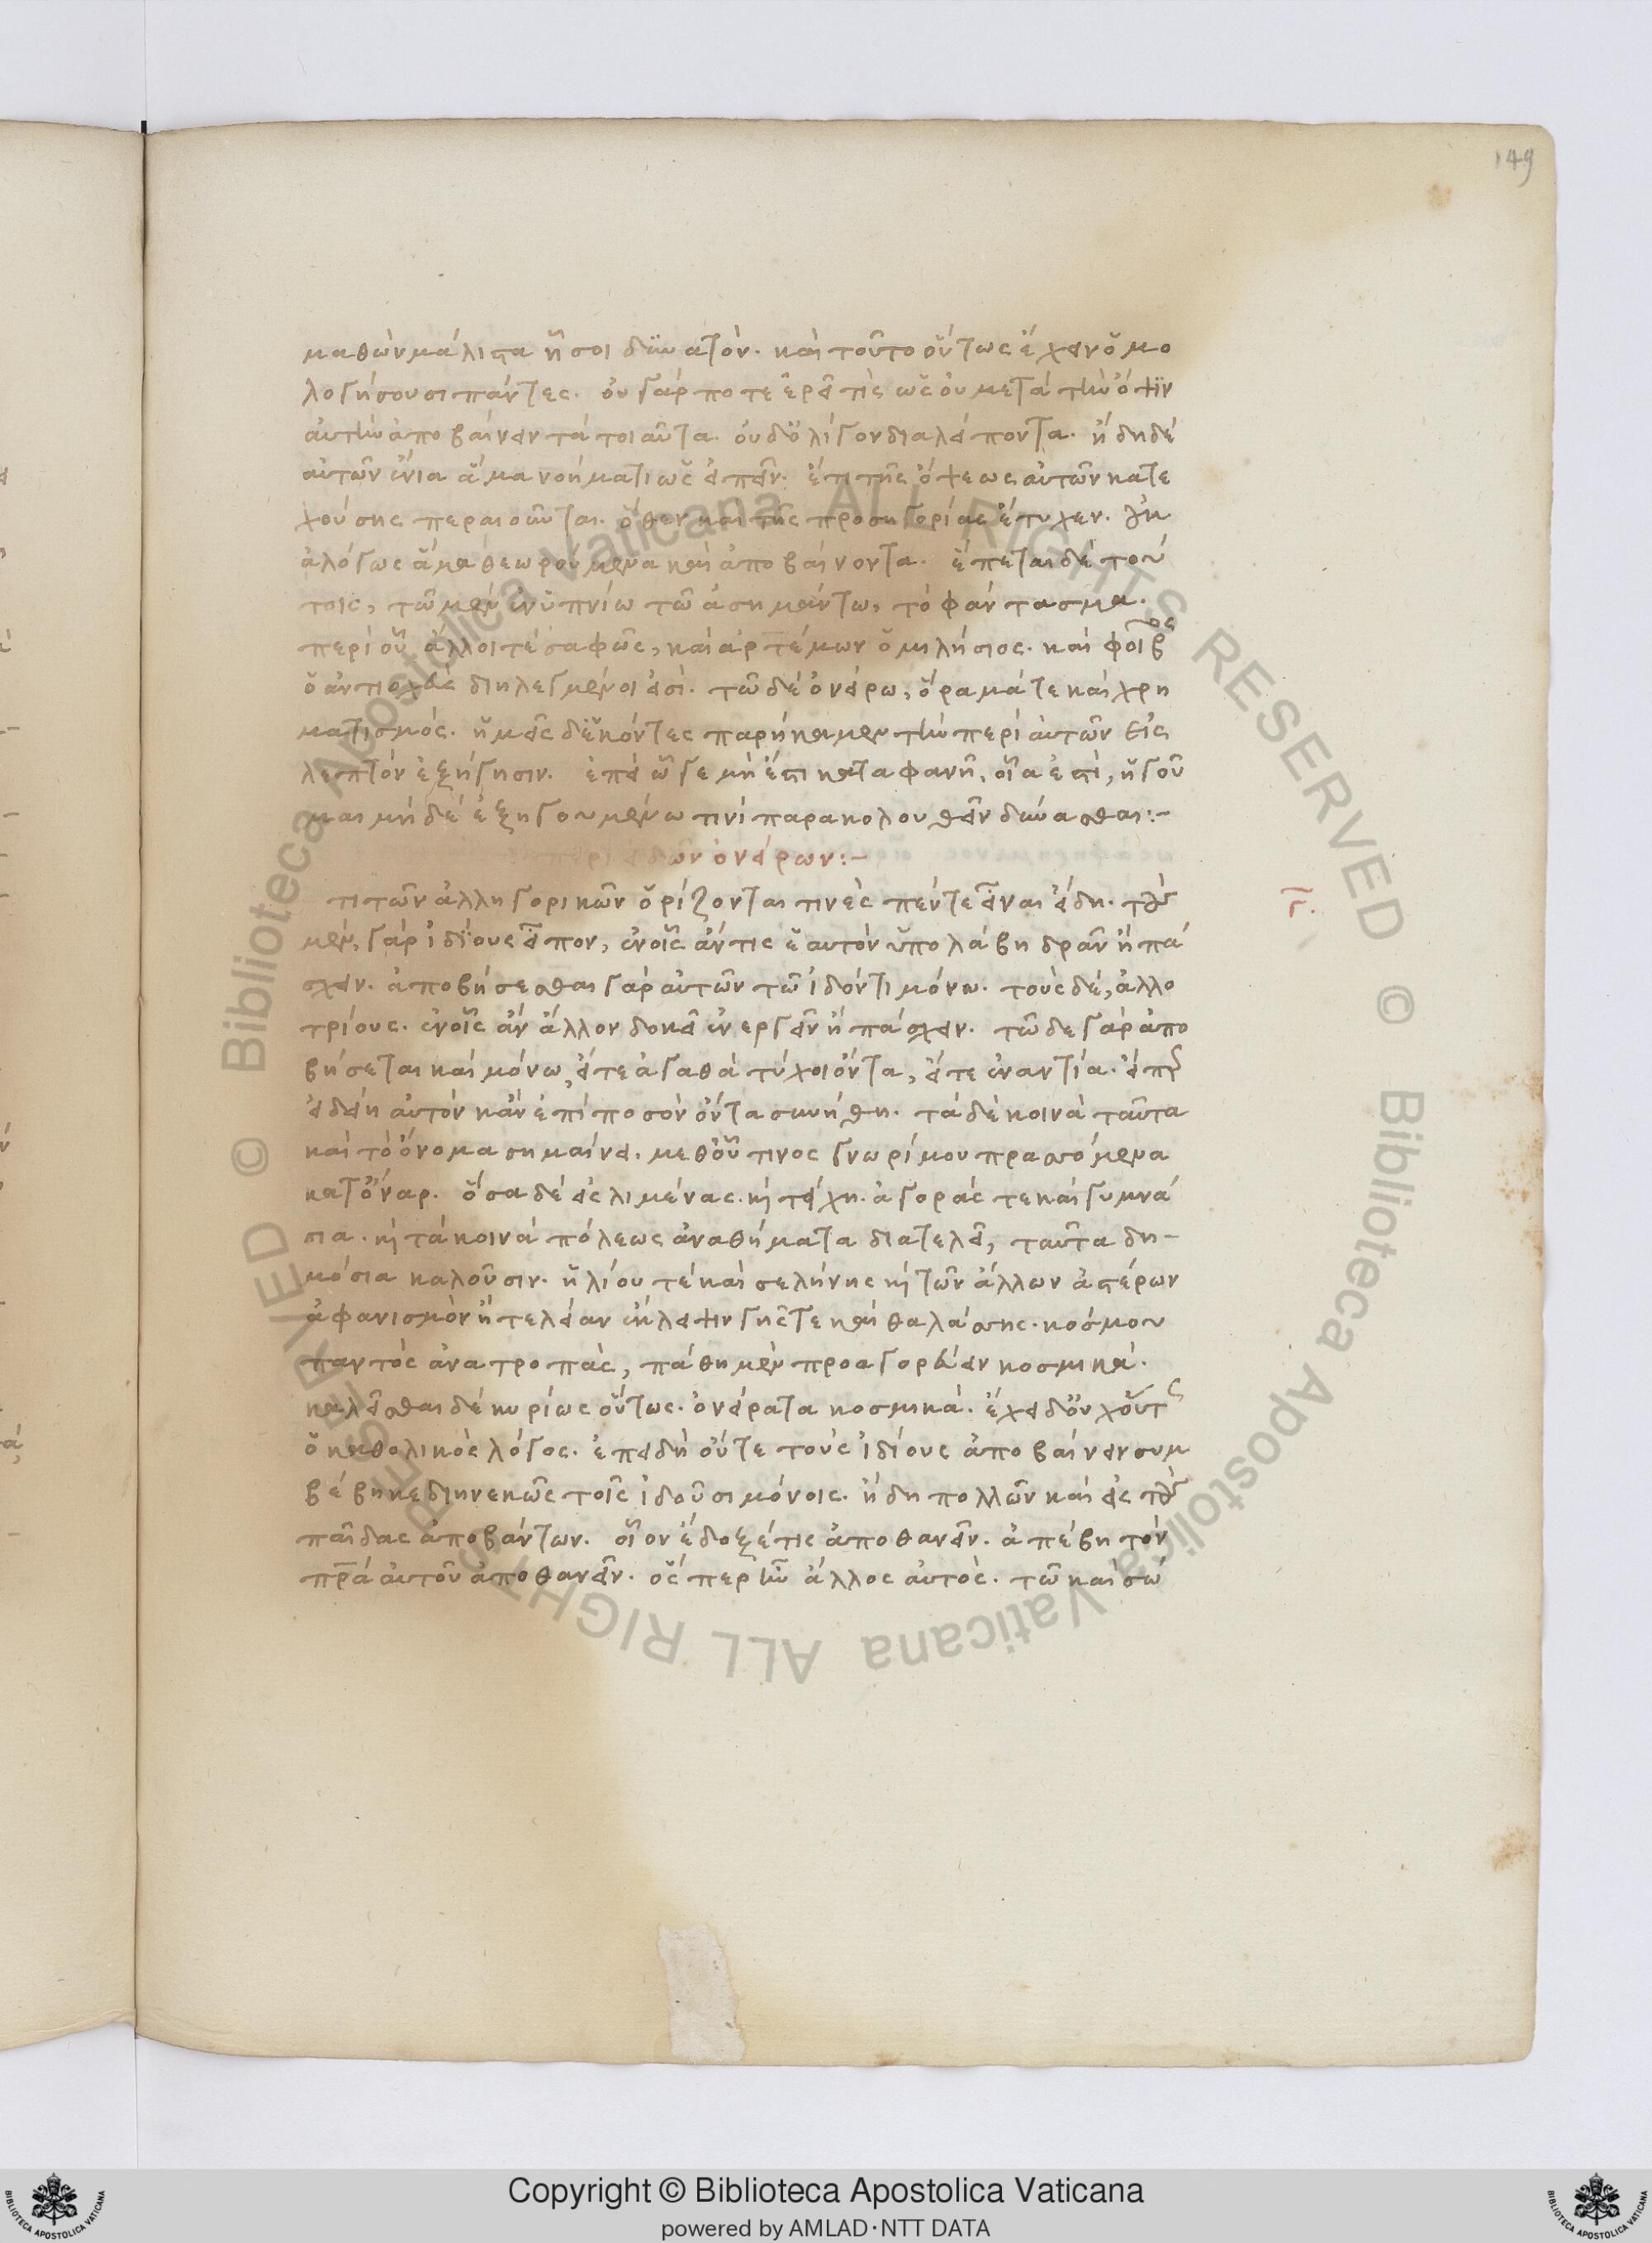 149
μαθὼν μάλιστα ᾗ σοι δυνατόν. καὶ τοῦτο οὕτως ἔχειν ὁμο
λογήσουσι πάντες. οὐ γάρ ποτε ἐρεῖ τὶς ὡς οὐ μετὰ τὴν ὄψιν
αὐτὴν ἀποβαίνειν τὰ τοιαῦτα. οὐδ ὀλίγον διαλείποντα. ἤδη δὲ
αὐτῶν ἔνια ἅμα νοήματι ὡς εἰπεῖν. ἔτι τῆς ὄψεως αὐτῶν κατε
χούσης περαιοῦνται. ὅθεν καὶ τῆς προσηγορίας ἔτυχεν. οὐκ
ἀλόγως ἅμα θεωρούμενα καὶ ἀποβαίνοντα. ἕπεται δὲ τού
τοις, τῶ μὲν ἐνυπνίω τῶ ἀσημάντω, τὸ φάντασμα.
περὶ οὗ ἄλλοι τὲ σαφῶς, καὶ ἀρτέμων ὁ μιλήσιος. καὶ φοῖβος
ὁ ἀντιοχεὺς διηλεγμένοι εἰσὶ. τῶ δὲ ὀνείρω, ὅραμά τε καὶ χρη
ματισμός. ἡμεῖς δ ἑκόντες παρήκαμεν τὴν περὶ αὐτῶν εἰς
λεπτὸν ἐξήγησιν. ἐπεὶ ὧ γε μὴ ἔστι καταφανῆ, οἷα ἐστὶ, ἡγοῦ
μαι μηδὲ ἐξηγουμένω τινὶ παρακολουθεῖν δύνασθαι:-
περὶ εἰδῶν ὀνείρων:-
γ.
τι τῶν ἀλληγορικῶν ὁρίζονται τινὲς πέντε εἶναι εἴδη. τοὺς
μὲν, γὰρ ἰδίους εἶπον, ἐν οἷς ἄν τις ἑαυτὸν ὑπολάβη δρᾶν ἢ πά
σχειν. ἀποβήσεσθαι γὰρ αὐτῶν τῶ ἰδόντι μόνω. τοὺς δὲ, ἀλλο
τρίους. ἐν οἷς ἂν ἄλλον δοκεῖ ἐνεργεῖν ἢ πάσχειν. τῶδε γὰρ ἀπο
βήσεται καὶ μόνω, εἴτε ἀγαθὰ τύχοι ὄντα, εἴτε ἐναντία. εἴπερ
εἰδείη αὐτὸν κἂν ἐπί ποσον ὄντα συνήθη. τὰ δὲ κοινὰ ταῦτα
καὶ τὸ ὄνομα σημαίνει. μεθ οὗ τινος γνωρίμου πρασσόμενα
κατ ὄναρ. ὅσα δὲ εἰς λιμένας. καὶ τείχη. ἀγοράς τε καὶ γυμνά
σια. καὶ τὰ κοινὰ πόλεως ἀναθήματα διατελεῖ, ταῦτα δη-
μόσια καλοῦσιν. ἡλίου τὲ καὶ σελήνης καὶ τῶν ἄλλων ἀστέρων
ἀφανισμὸν ἢ τελείαν ἔκλειψιν γῆς τε καὶ θαλάσσης. κόσμου
παντὸς ἀνατροπὰς, πάθη μὲν προαγορεύειν κοσμικά.
καλεῖσθαι δὲ κυρίως οὕτως. ὀνείρατα κοσμικά. ἔχει δ οὐχ οὕτως
ὁ καθολικὸς λόγος. ἐπειδὴ οὔτε τοὺς ἰδίους ἀποβαίνειν συμ
βέβηκε διηνεκῶς τοῖς ἰδοῦσι μόνοις. ἤδη πολλῶν καὶ εἰς τοὺς
παῖδας ἀποβάντων. οἷον ἔδοξέ τις ἀποθανεῖν. ἀπέβη τὸν
πρα αὐτοῦ ἀποθανεῖν. ὅσπερ ἦν ἄλλος αὐτὸς. τῶ καὶ σώ
Copyright © Biblioteca Apostolica Vaticana
powered by AMLAD·NTT DATA